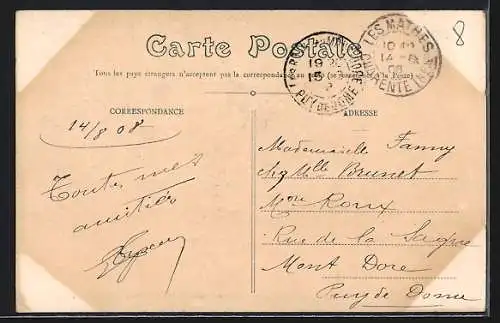 Carte Postale
Tous les pays étrangers n'acceptent pas la correspondance au dos (se renseigner à la Poste)
CORRESPONDANCE
ADRESSE
8
LES MATHES
14
CHARENTE INFRE
19
15
PUY DE DOME
14/8 08
Toutes mes
amitiés
Mademoiselle Fanny
chez Mlle Brunet
Mon Roux
Rue de la
Mont Dore
Puy de Dome